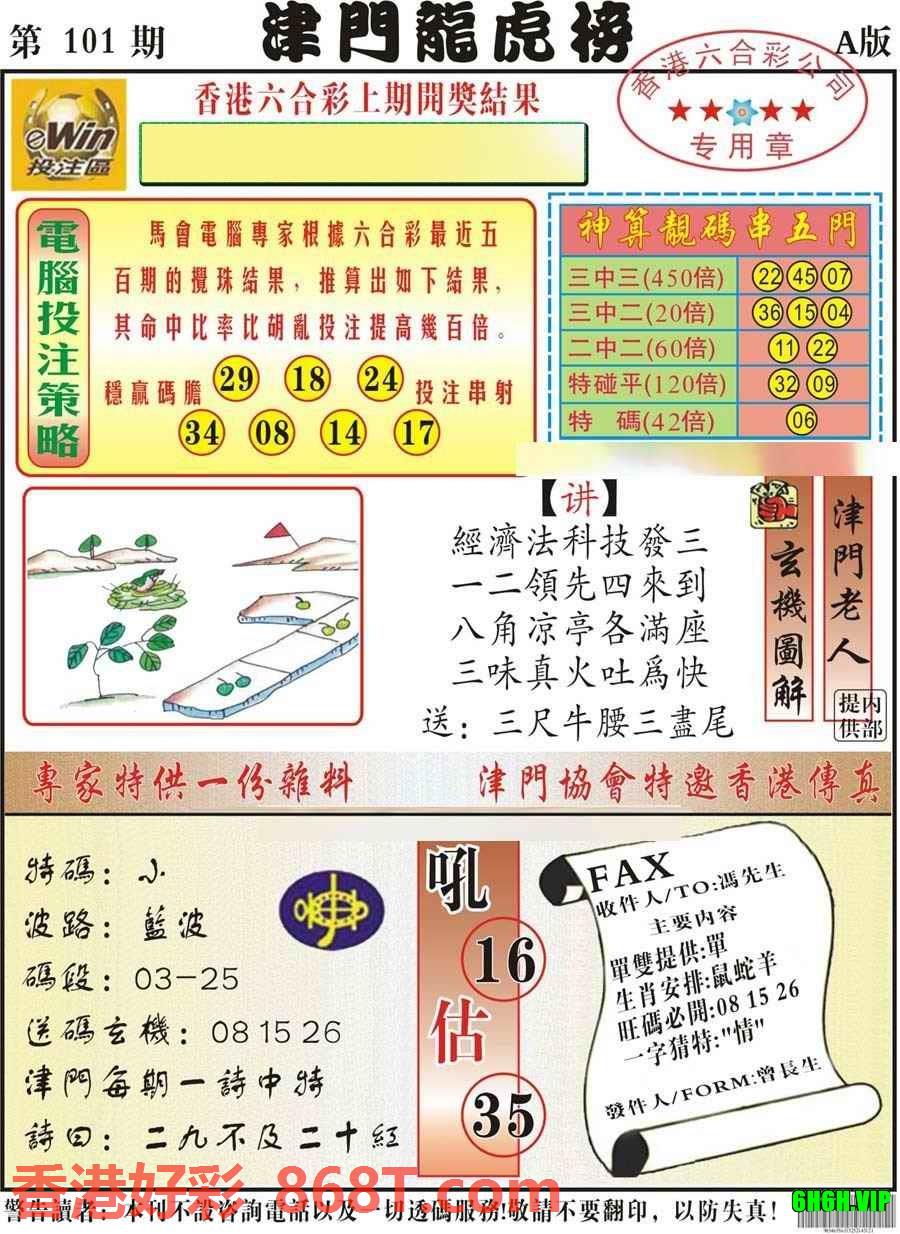 第 101 期
津門龍虎榜
A版
eWin
投注區
香港六合彩上期開獎結果
香港六合彩公司
专用章
電腦投注策略
馬會電腦專家根據六合彩最近五
百期的攪珠結果，推算出如下結果，
其命中比率比胡亂投注提高幾百倍。
穩贏碼膽 29 18 24 投注串射
34 08 14 17
神算靚碼串五門
三中三(450倍) 22 45 07
三中二(20倍) 36 15 04
二中二(60倍) 11 22
特碰平(120倍) 32 09
特 碼(42倍) 06
【讲】
經濟法科技發三
一二領先四來到
八角凉亭各滿座
三味真火吐爲快
送：三尺牛腰三盡尾
玄機圖解
津門老人
内部提供
專家特供一份雜料
津門協會特邀香港傳真
特碼：小
波路：藍波
碼段：03－25
送碼玄機：08 15 26
津門每期一詩中特
詩曰：二九不及二十紅
吼
16
估
35
FAX
收件人/TO:馮先生
主要内容
單雙提供:單
生肖安排:鼠蛇羊
旺碼必開:08 15 26
一字猜特:"情"
發件人/FORM:曾長生
香港好彩 868T.com
警告讀者：本刊不設咨詢電話以及一切透碼服務!敬請不要翻印，以防失真!
6H6H.VIP